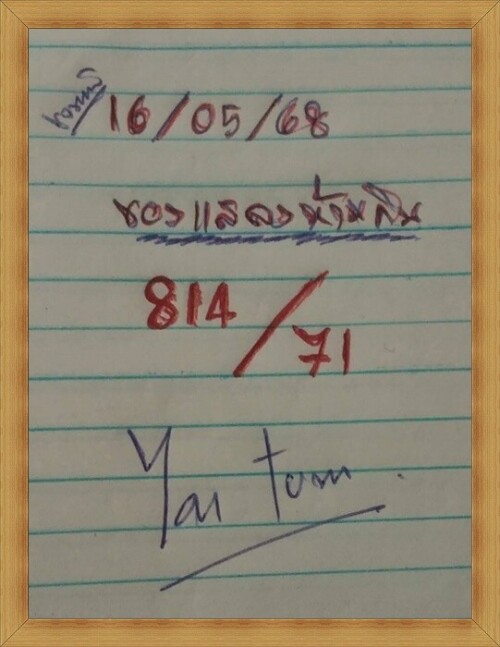 งวดที่ 16/05/68
ของแสลงห้ามกิน
814/71
Yai tom.